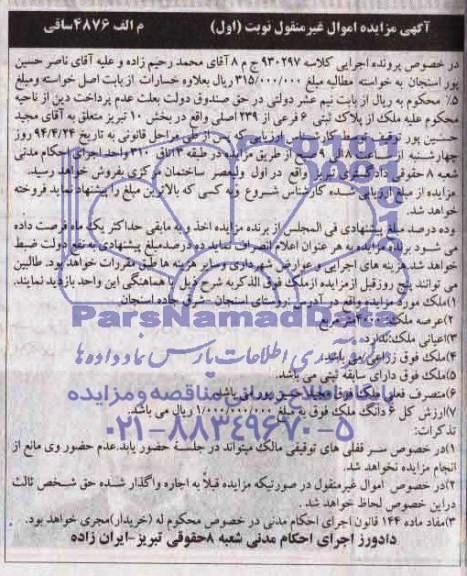 آگهی مزایده اموال غیرمنقول نوبت (اول) م الف ۴۸۷۶ساقی
در خصوص پرونده اجرایی کلاسه ۹۳۰۲۹۷ ج م ۸ آقای محمد رحیم زاده و علیه آقای ناصر حسین
پور اسنجان به خواسته مطالبه مبلغ ۳۱۵/۰۰۰/۰۰۰ ریال بعلاوه خسارات از بابت اصل خواسته ومبلغ
۵٪ محکوم به ریال از بابت نیم عشر دولتی در حق صندوق دولت بعلت عدم پرداخت دین از ناحیه
محکوم علیه ملک از پلاک ثبتی ۶ فرعی از ۲۳۹ اصلی واقع در بخش ۱۰ تبریز متعلق به آقای مجید
حسین پور توقیف و توسط کارشناس ارزیابی که پس از طی مراحل قانونی به تاریخ ۹۴/۴/۲۴ روز
چهارشنبه از ساعت ۸ الی ۹ صبح از طریق مزایده در طبقه ۳ اتاق ۳۱۰ واحد اجرای احکام مدنی
شعبه ۸ حقوقی دادگستری تبریز واقع در اول ولیعصر ساختمان مرکزی بفروش خواهد رسید.
مزایده از مبلغ ارزیابی شده کارشناس شروع و به کسی که بالاترین مبلغ را پیشنهاد نماید فروخته
خواهد شد.
وده درصد مبلغ پیشنهادی فی المجلس از برنده مزایده اخذ و به مابقی حداکثر یک ماه فرصت داده
می شود برنده مزایده به هر عنوان اعلام انصراف نماید ده درصدمبلغ پیشنهادی به نفع دولت ضبط
خواهد شد.هزینه های اجرایی و عوارض شهرداری وسایر هزینه ها طبق مقررات خواهد بود. طالبین
می توانند پنج روزقبل ازمزایده ازملک فوق الذکربه شرح ذیل با هماهنگی این واحد بازدید نمایند.
۱)ملک مورد مزایده واقع در آدرس :روستای اسنجان – شرق جاده اسنجان
۲)عرصه ملک: مترمربع
۳)اعیانی ملک:ندارد
۴)ملک فوق زراعی می باشد.
۵)ملک فوق دارای سابقه ثبتی می باشد.
۶)متصرف فعلی ملک فوق مجید حسین پور می باشد.
۷)ارزش کل ۶ دانگ ملک فوق به مبلغ ۱/۰۰۰/۰۰۰/۰۰۰ ریال می باشد.
تذکرات:
۱)در خصوص سر قفلی های توقیفی مالک میتواند در جلسه حضور یابد.عدم حضور وی مانع از
انجام مزایده نخواهد شد.
۲)در خصوص اموال غیرمنقول در صورتیکه مزایده قبلاً به اجاره واگذار شده حق شخص ثالث
دراین خصوص لحاظ خواهد شد .
۳)مفاد ماده ۱۴۴ قانون اجرای احکام مدنی در خصوص محکوم له (خریدار)مجری خواهد بود.
دادورز اجرای احکام مدنی شعبه ۸حقوقی تبریز-ایران زاده
ParsNamadData
فن آوری اطلاعات پارس نماد داده ها
پایگاه اطلاع رسانی مناقصه و مزایده
۰۲۱-۸۸۳۴۹۶۷۰-۵